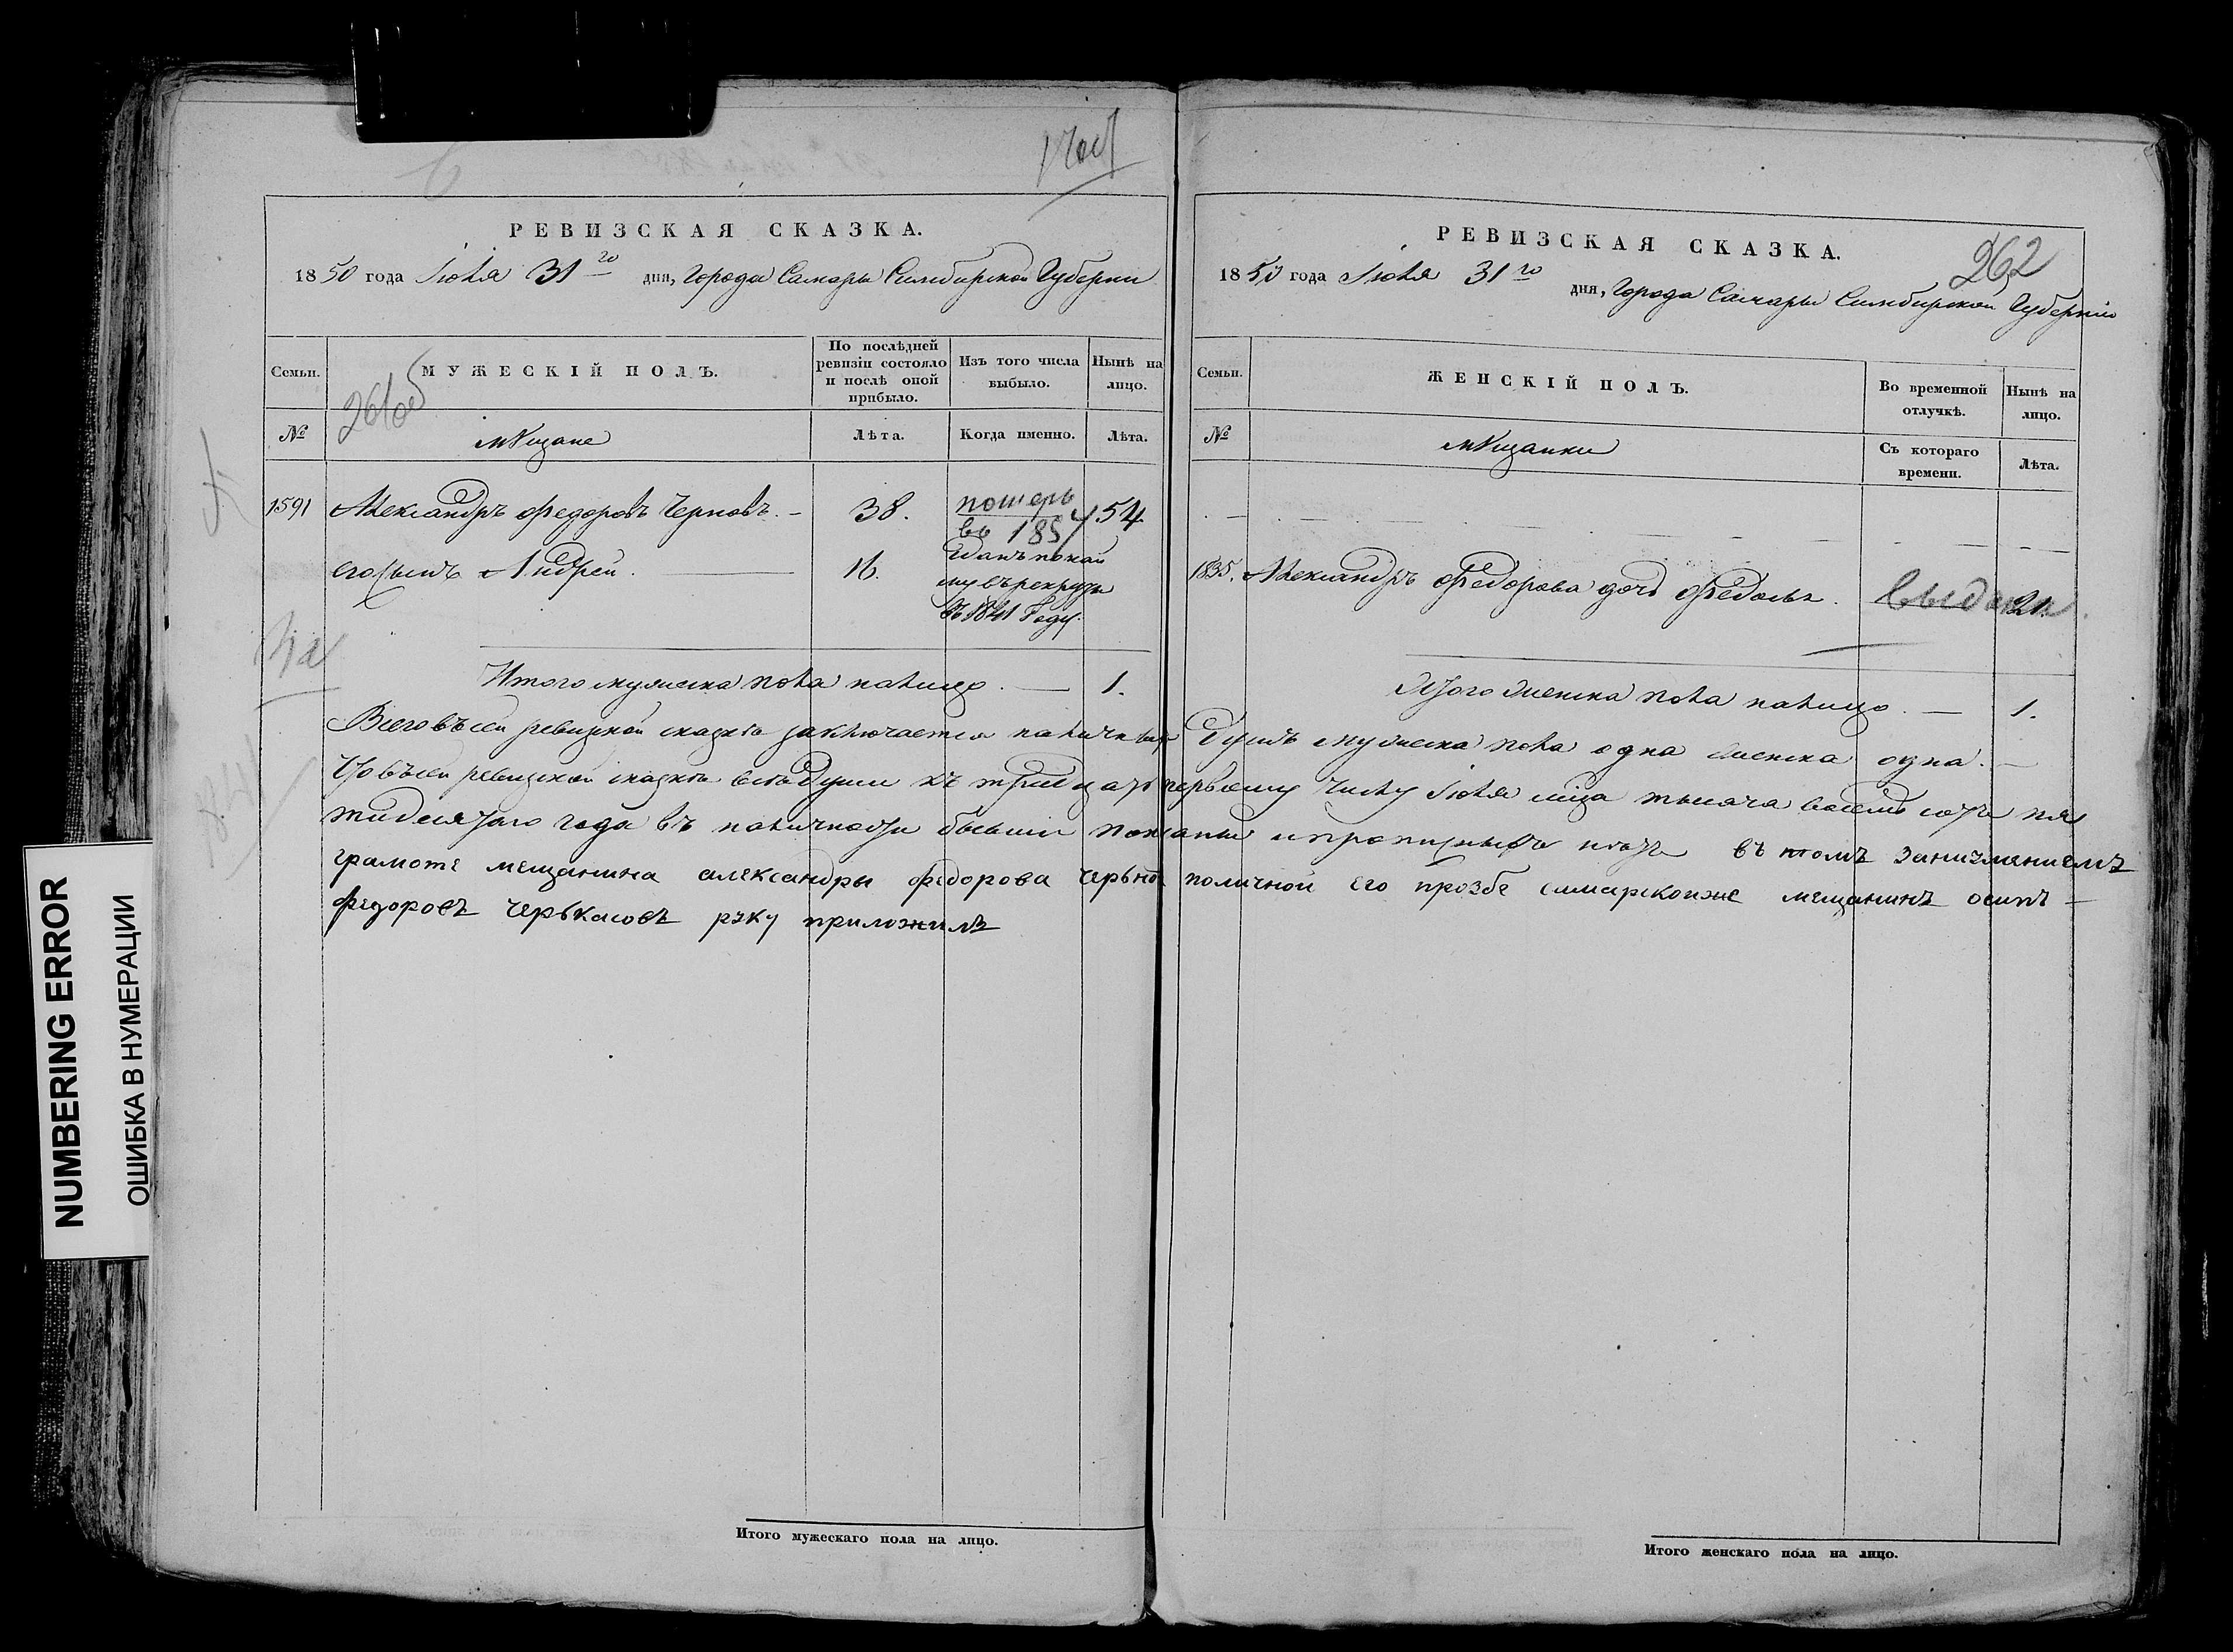 РЕВИЗСКАЯ СКАЗКА.
1850 года Іюля 31го дня, Города Самары Симбирской Губерніи
Семьи.
МУЖЕСКІЙ ПОЛЪ.
По послѣдней ревизіи состояло и послѣ оной прибыло.
Изъ того числа выбыло.
Нынѣ на лицо.
261об
№
мѣщане
Лѣта.
Когда именно.
Лѣта.
1591
Александръ Федоровъ Черновъ. —
38.
померъ въ 1857
54
его сынъ Андрей.
16.
въ рекруты
въ 1841 Году.
Итого мужеска пола налицо. — 1.
РЕВИЗСКАЯ СКАЗКА.
262
1850 года Іюля 31го дня, Города Самары Симбирской Губерніи
Семьи.
ЖЕНСКІЙ ПОЛЪ.
Во временной отлучкѣ.
Нынѣ на лицо.
№
мѣщанки
Съ котораго времени.
Лѣта.
Александръ Федорова дочь
выдана
21.
Итого женска пола налицо. — 1.
Всего въ сей ревизкой сказкѣ заключается душъ мужеска пола одна женска одна. —
Что въ сей ревизкой сказкѣ всѣ души къ тридцать первому числу Іюля мца тысяча восемь сотъ пя
тидесятаго года въ наличности бывши показаны и прописныхъ нѣтъ въ томъ
грамоте мещанина александры федорова поличной его прозбе мещанинъ осипъ —
федоровъ черькасовъ руку приложилъ
Итого мужескаго пола на лицо.
Итого женскаго пола на лицо.
NUMBERING ERROR
ОШИБКА В НУМЕРАЦИИ